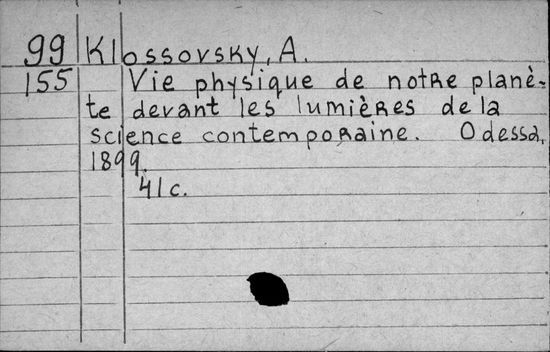 99 Klossovsky, A.
155 Vie physique de notre planè-
te devant les lumières de la
science contemporaine. Odessa,
1899.
41 c.